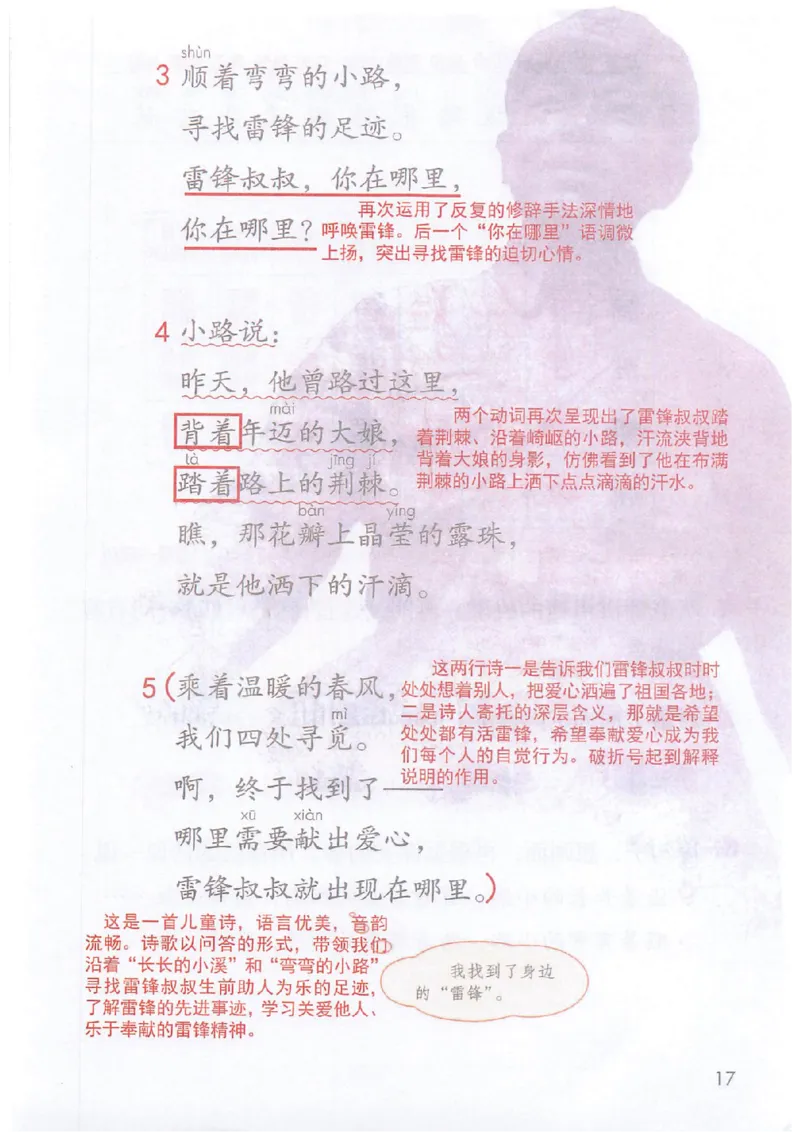 shùn
3 顺着弯弯的小路，
寻找雷锋的足迹。
雷锋叔叔，你在哪里，
你在哪里？
再次运用了反复的修辞手法深情地
呼唤雷锋。后一个“你在哪里”语调微
上扬，突出寻找雷锋的迫切心情。
4 小路说：
昨天，他曾路过这里，
mài
背着年迈的大娘，
tà jīng jí
踏着路上的荆棘。
两个动词再次呈现出了雷锋叔叔踏
着荆棘、沿着崎岖的小路，汗流浃背地
背着大娘的身影，仿佛看到了他在布满
荆棘的小路上洒下点点滴滴的汗水。
bàn yíng
瞧，那花瓣上晶莹的露珠，
就是他洒下的汗滴。
5（乘着温暖的春风，
mì
我们四处寻觅。
啊，终于找到了——
xū xiàn
哪里需要献出爱心，
雷锋叔叔就出现在哪里。）
这两行诗一是告诉我们雷锋叔叔时时
处处想着别人，把爱心洒遍了祖国各地；
二是诗人寄托的深层含义，那就是希望
处处都有活雷锋，希望奉献爱心成为我
们每个人的自觉行为。破折号起到解释
说明的作用。
这是一首儿童诗，语言优美，音韵
流畅。诗歌以问答的形式，带领我们
沿着“长长的小溪”和“弯弯的小路”
寻找雷锋叔叔生前助人为乐的足迹，
了解雷锋的先进事迹，学习关爱他人、
乐于奉献的雷锋精神。
我找到了身边
的“雷锋”。
17